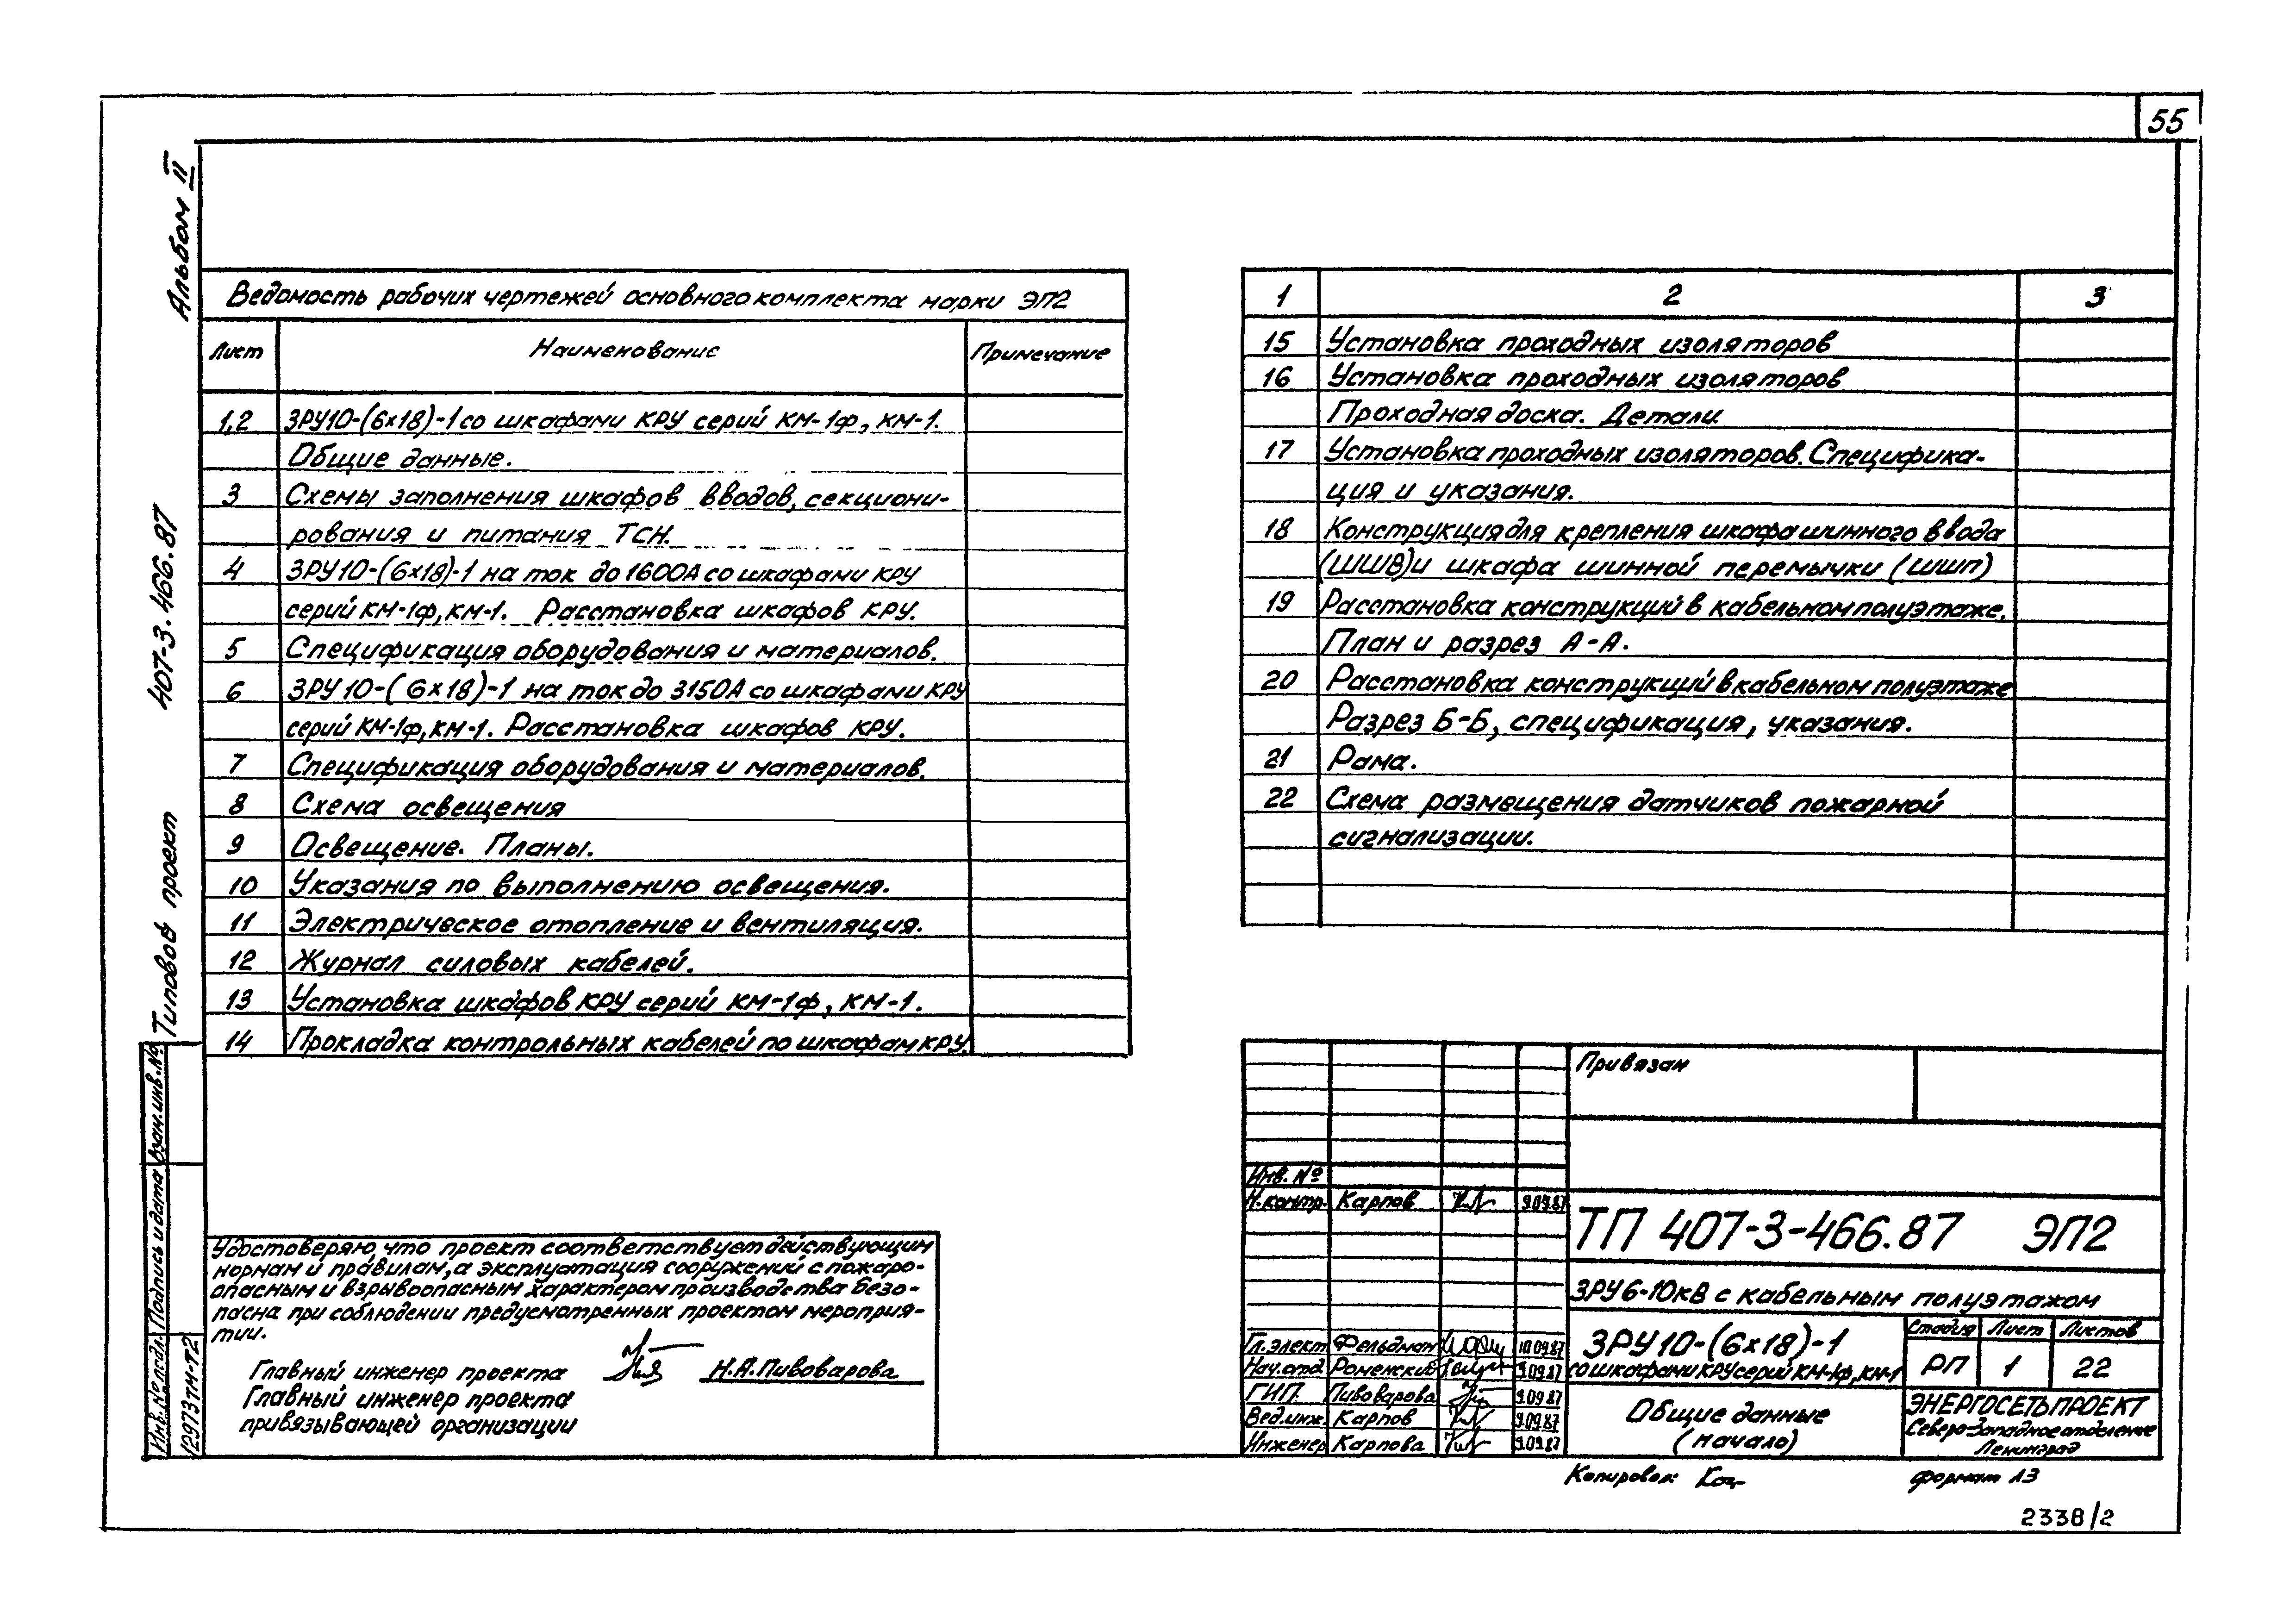 55
Альбом II
407-3.466.87
Типовой проект
Взам.инв.№
Подпись и дата
Инв.№ подл.
12973тм-т2
Ведомость рабочих чертежей основного комплекта марки ЭП2
Лист Наименование Примечание
1,2 ЗРУ10-(6×18)-1 со шкафами КРУ серий КМ-1ф, КМ-1.
Общие данные.
3 Схемы заполнения шкафов вводов, секциони-
рования и питания ТСН.
4 ЗРУ10-(6×18)-1 на ток до 1600А со шкафами КРУ
серий КМ-1ф, КМ-1. Расстановка шкафов КРУ.
5 Спецификация оборудования и материалов.
6 ЗРУ10-(6×18)-1 на ток до 3150А со шкафами КРУ
серий КМ-1ф, КМ-1. Расстановка шкафов КРУ.
7 Спецификация оборудования и материалов.
8 Схема освещения
9 Освещение. Планы.
10 Указания по выполнению освещения.
11 Электрическое отопление и вентиляция.
12 Журнал силовых кабелей.
13 Установка шкафов КРУ серий КМ-1ф, КМ-1.
14 Прокладка контрольных кабелей по шкафам КРУ.
1 2 3
15 Установка проходных изоляторов
16 Установка проходных изоляторов
Проходная доска. Детали.
17 Установка проходных изоляторов. Специфика-
ция и указания.
18 Конструкция для крепления шкафа шинного ввода
(ШШВ) и шкафа шинной перемычки (ШШП)
19 Расстановка конструкций в кабельном полуэтаже.
План и разрез А-А.
20 Расстановка конструкций в кабельном полуэтаже
Разрез Б-Б, спецификация, указания.
21 Рама.
22 Схема размещения датчиков пожарной
сигнализации.
Удостоверяю, что проект соответствует действующим
нормам и правилам, а эксплуатация сооружений с пожаро-
опасным и взрывоопасным характером производства безо-
пасна при соблюдении предусмотренных проектом мероприя-
тий.
Главный инженер проекта Н.А.Пивоварова
Главный инженер проекта
привязывающей организации
Привязан
Инв. №
Н.контр. Карпов 9.09.87
ТП 407-3-466.87 ЭП2
ЗРУ 6-10кВ с кабельным полуэтажом
Гл.элект. Фельдман 10.09.87
Нач.отд. Роменский 9.09.87
ГИП. Пивоварова 9.09.87
Вед.инж. Карпов 9.09.87
Инженер Карпова 9.09.87
ЗРУ10-(6×18)-1
со шкафами КРУ серий КМ-1ф, КМ-1
Стадия Лист Листов
РП 1 22
Общие данные
(начало)
ЭНЕРГОСЕТЬПРОЕКТ
Северо-Западное отделение
Ленинград
Копировал: формат А3
2338/2